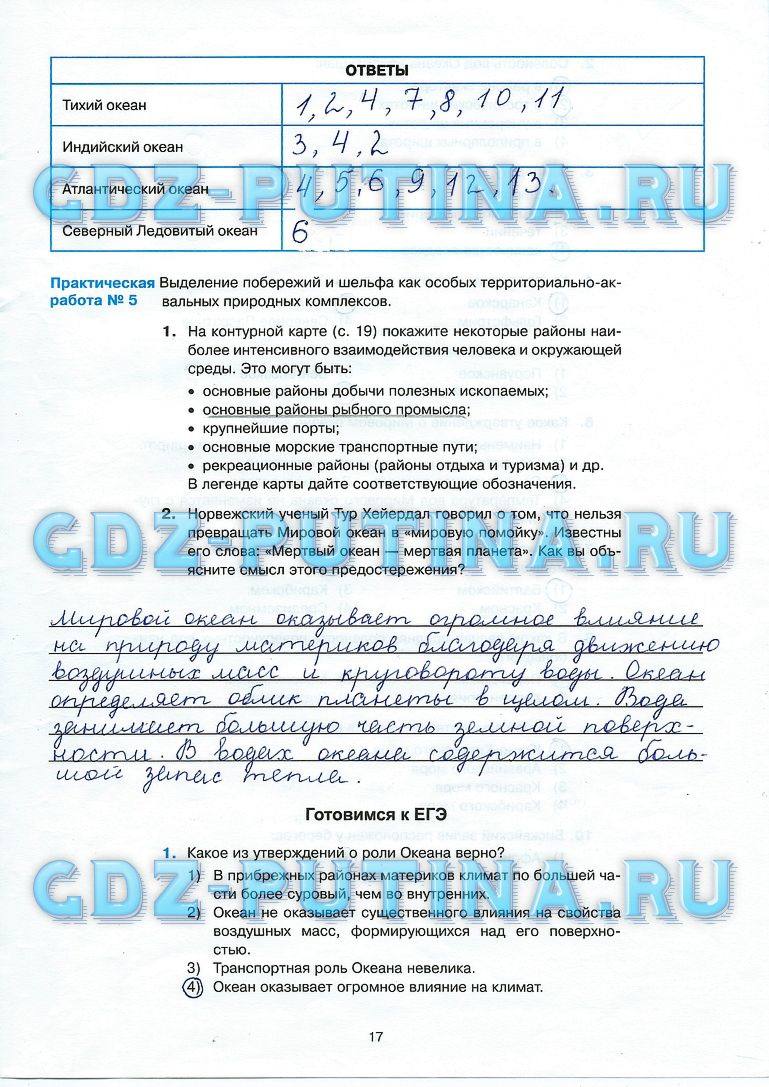 ОТВЕТЫ
Тихий океан 1, 2, 4, 7, 8, 10, 11
Индийский океан 3, 4, 2
Атлантический океан 4, 5, 6, 9, 12, 13.
GDZ-PUTINA.RU
Северный Ледовитый океан 6
Практическая работа № 5
Выделение побережий и шельфа как особых территориально-ак-
вальных природных комплексов.
1. На контурной карте (с. 19) покажите некоторые районы наи-
более интенсивного взаимодействия человека и окружающей
среды. Это могут быть:
• основные районы добычи полезных ископаемых;
• основные районы рыбного промысла;
• крупнейшие порты;
• основные морские транспортные пути;
• рекреационные районы (районы отдыха и туризма) и др.
В легенде карты дайте соответствующие обозначения.
2. Норвежский ученый Тур Хейердал говорил о том, что нельзя
превращать Мировой океан в «мировую помойку». Известны
GDZ-PUTINA.RU
его слова: «Мертвый океан — мертвая планета». Как вы объ-
ясните смысл этого предостережения?
Мировой океан оказывает огромное влияние
на природу материков благодаря движению
воздушных масс и круговороту воды. Океан
определяет облик планеты в целом. Вода
занимает большую часть земной поверх-
ности. В водах океана содержится боль-
шой запас тепла.
Готовимся к ЕГЭ
1. Какое из утверждений о роли Океана верно?
1) В прибрежных районах материков климат по большей ча-
сти более суровый, чем во внутренних.
GDZ-PUTINA.RU
2) Океан не оказывает существенного влияния на свойства
воздушных масс, формирующихся над его поверхно-
стью.
3) Транспортная роль Океана невелика.
4) Океан оказывает огромное влияние на климат.
17